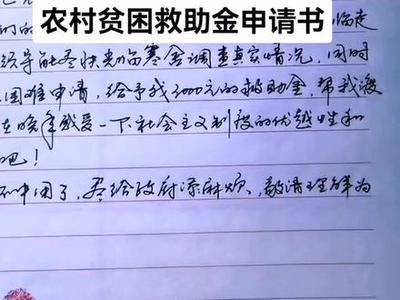 农村贫困救助金申请书
领导能尽快光临寒舍调查真实情况，同时
困难申请，给予我3000元的救助金，帮我渡
在晚年感受一下社会主义制度的优越性和
吧！
不中用了，尽给政府添麻烦，敬请理解为